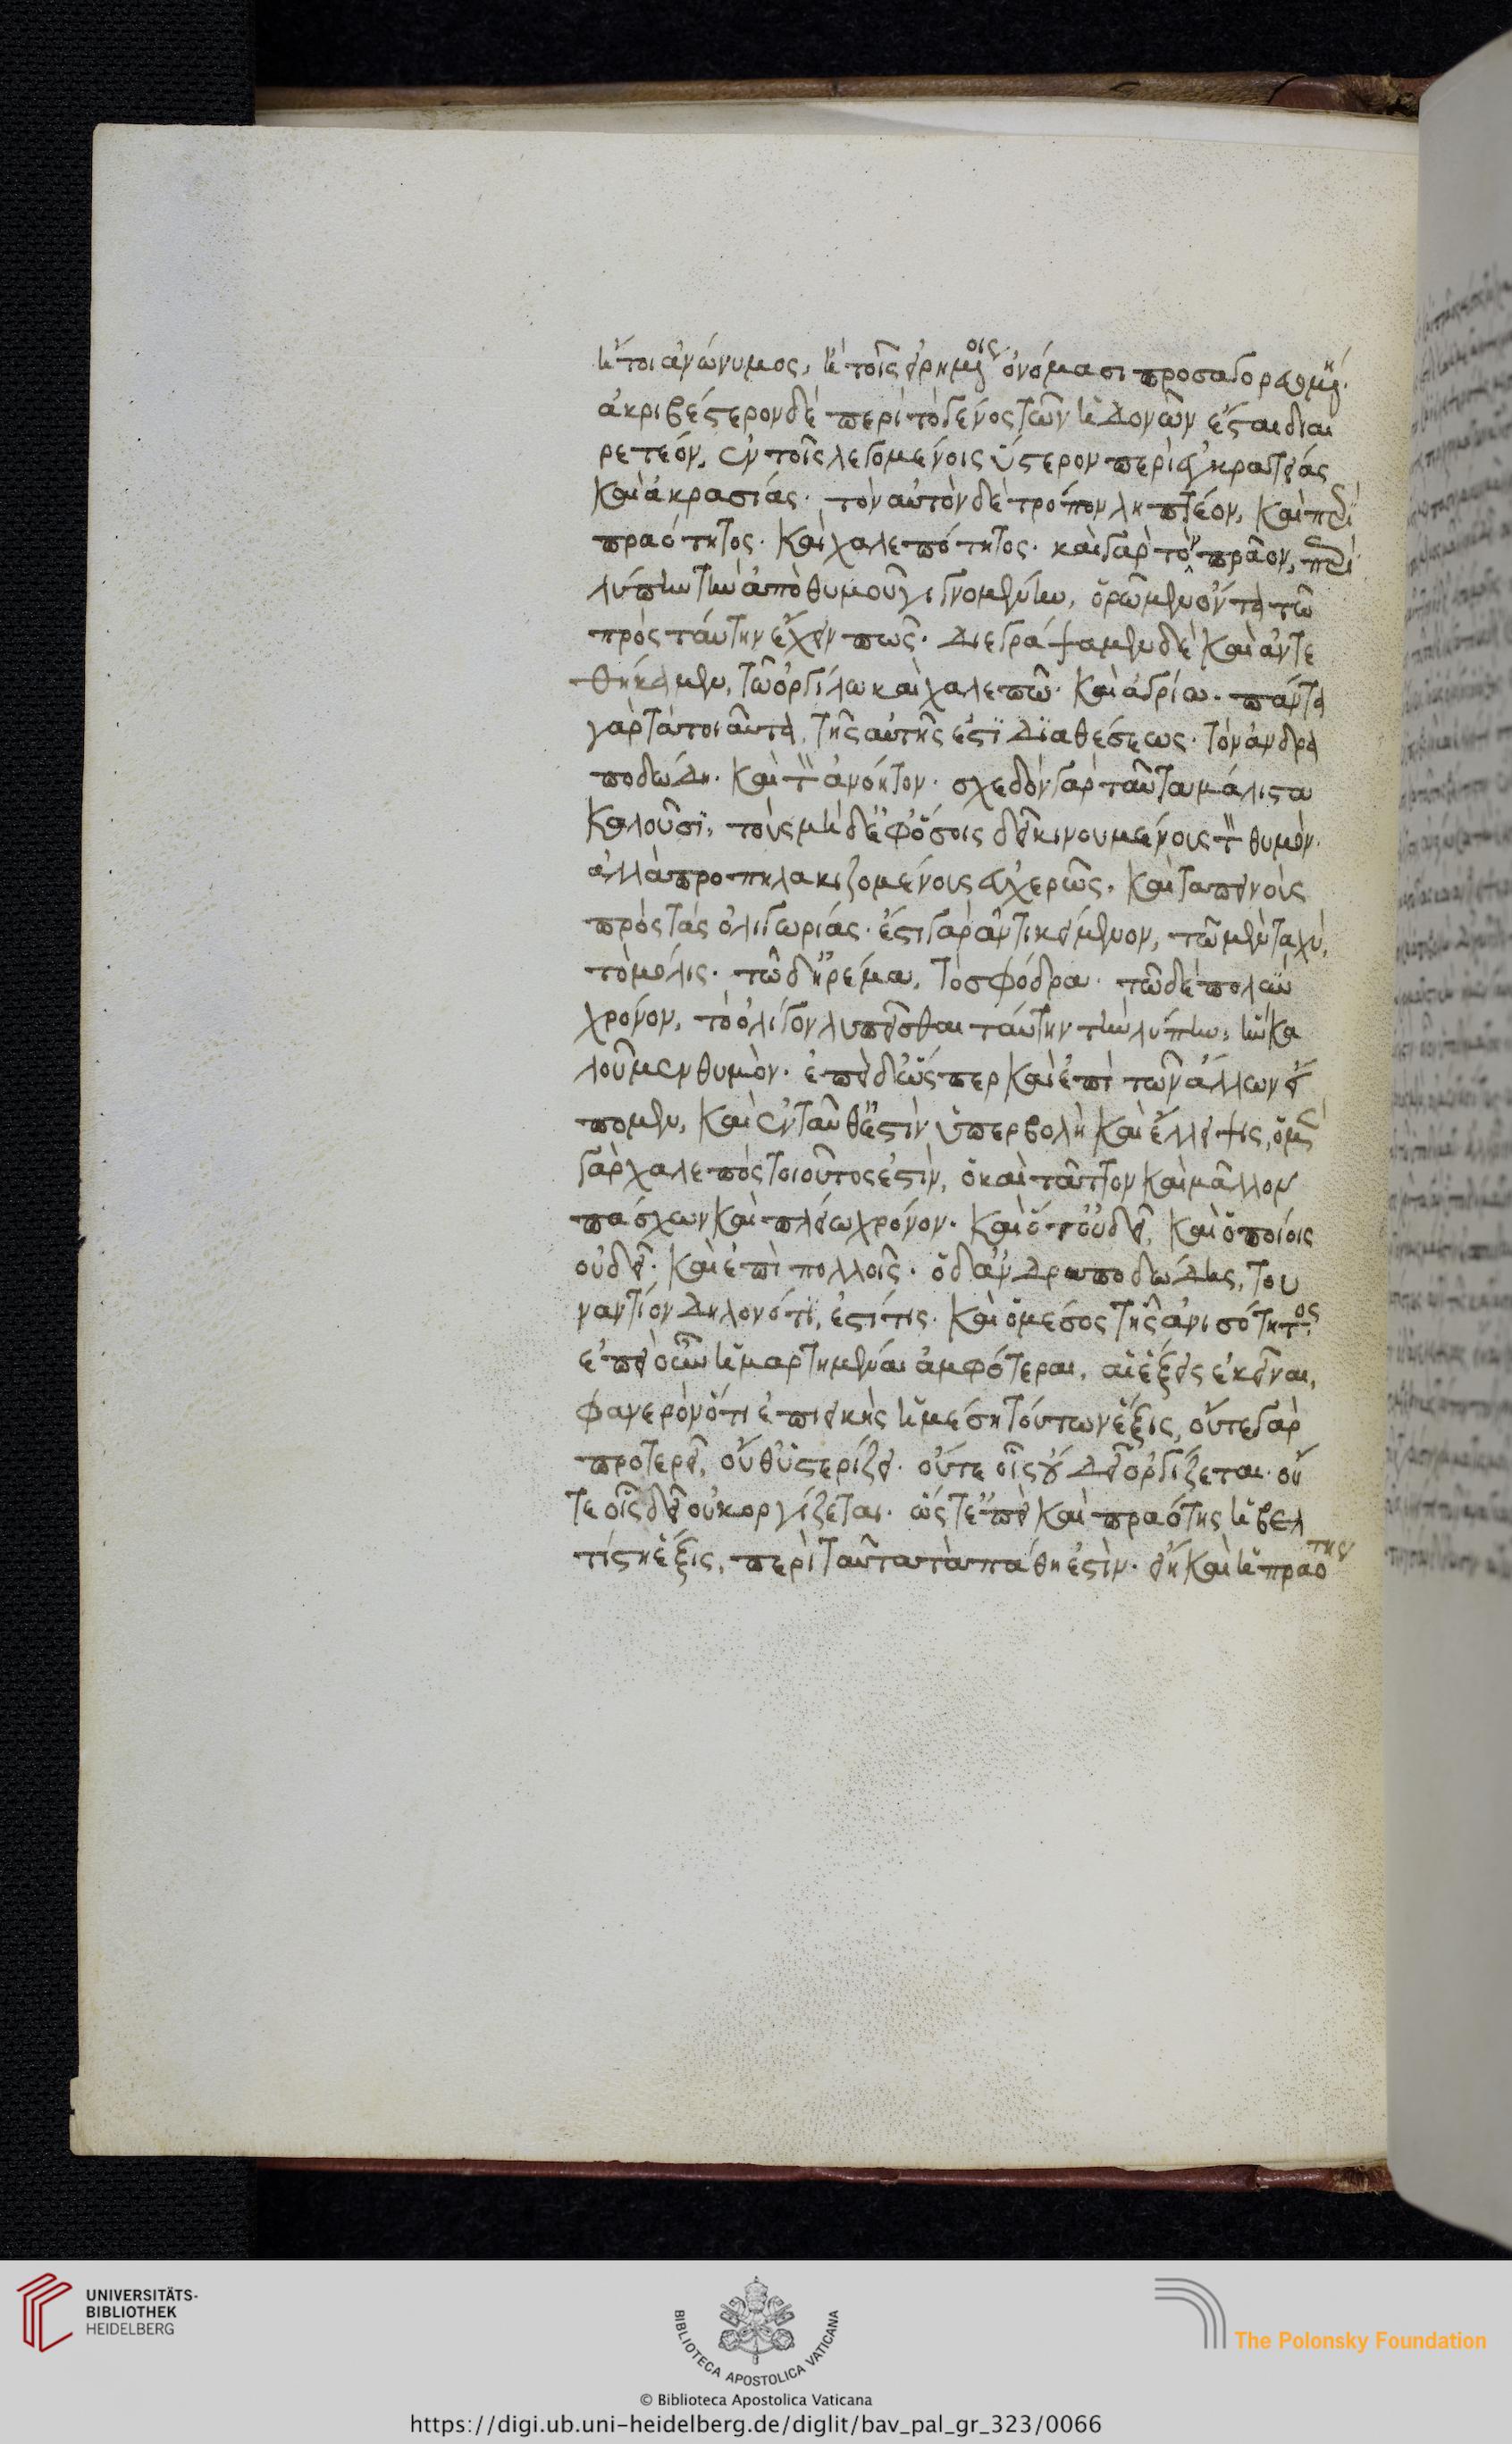 ἤτοι ἀνώνυμος, ἢ τοῖς εἰρημένοις ὀνόμασι προσαγορευόμενος.
ἀκριβέστερον δὲ περὶ τὸ γένος τῶν ἡδονῶν ἔσται διαι
ρετέον, ἐν τοῖς λεγομένοις ὕστερον περὶ ἐγκρατείας
καὶ ἀκρασίας. τὸν αὐτὸν δὲ τρόπον ληπτέον, καὶ περὶ
πραότητος. καὶ χαλεπότητος. καὶ γὰρ τὸν πρᾶον, περὶ
λύπην τὴν ἀπὸ θυμοῦ γιγνομένην, ὁρῶμεν ὄντα τῶ
πρὸς ταύτην ἔχειν πως. διεγράψαμεν δὲ καὶ ἀντε
θήκαμεν, τῶ ὀργίλω καὶ χαλεπῶ. καὶ ἀγρίω. πάντα
γὰρ τὰ τοιαῦτα, τῆς αὐτῆς ἐστὶ διαθέσεως. τὸν ἀνδρα
ποδώδη. καὶ τὸν ἀνόητον. σχεδὸν γὰρ ταῦτα μάλιστα
καλοῦσι, τοὺς μὴ δὲ ἐφ' ὅσοις δεῖ κινουμένοις τὸν θυμόν.
ἀλλὰ προπηλακιζομένοις εὐχερῶς. καὶ ταπεινοῖς
πρὸς τὰς ὀλιγωρίας. ἔστι γὰρ ἀντικείμενον, τῶ μὲν ταχὺ,
τὸ μόλις. τῶ δ' ἠρέμα, τὸ σφόδρα. τῶ δὲ πολὺν
χρόνον, τὸ ὀλίγον λυπεῖσθαι ταύτην τὴν λύπην, ἣν κα
λοῦμεν θυμόν. ἐπεὶ δ' ὥσπερ καὶ ἐπὶ τῶν ἄλλων εἴ
πομεν, καὶ ἐνταῦθ' ἐστὶν ὑπερβολὴ καὶ ἔλλειψις, ὁ μὲν
γὰρ χαλεπὸς τοιοῦτος ἐστὶν, ὁ καὶ τᾶττον καὶ μᾶλλον
πάσχων καὶ πλείω χρόνον. καὶ ὅτ' οὐ δεῖ, καὶ ὁποίοις
οὐ δεῖ. καὶ ἐπὶ πολλοῖς. ὁ δ' ἀνδραποδώδης, του
ναντίον δηλονότι, ἐστί τις. καὶ ὁ μέσος τῆς ἀνισότητος
ἐπεὶ οὖν ἡμαρτημέναι ἀμφότεραι, αἱ ἕξεις ἐκεῖναι,
φανερὸν ὅτι ἐπιεικὴς ἡ μέση τούτων ἕξις, οὔτε γὰρ
προτερεῖ, οὔθ' ὑστερίζει. οὔτε οἷς οὐ δεῖ ὀργίζεται. οὔ
τε οἷς δεῖ οὐκ ὀργίζεται. ὥστ' ἐπεὶ καὶ πραότης ἡ βελ
τίστη ἕξις, περὶ ταῦτα τὰ πάθη ἐστὶν. εἴη καὶ ἡ πραότης
UNIVERSITÄTS-
BIBLIOTHEK
HEIDELBERG
BIBLIOTECA APOSTOLICA VATICANA
The Polonsky Foundation
© Biblioteca Apostolica Vaticana
https://digi.ub.uni-heidelberg.de/diglit/bav_pal_gr_323/0066